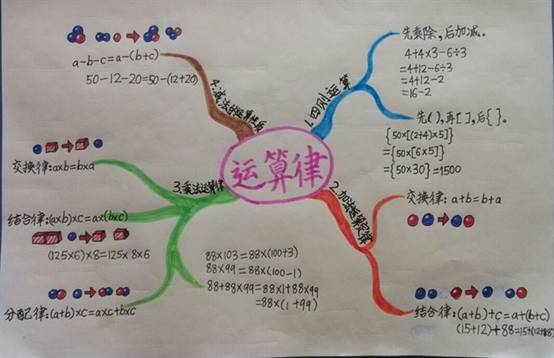 运算律
1.四则运算
先乘除，后加减。
4+4×3-6÷3
=4+12-6÷3
=4+12-2
=16-2
先( )，再[ ]，后{ }。
{50×[(2+4)×5]}
={50×[6×5]}
={50×30}=1500
2.加法运算定律
交换律:a+b=b+a
结合律:(a+b)+c=a+(b+c)
(15+12)+88=15+(12+88)
3.乘法运算律
交换律:a×b=b×a
结合律:(a×b)×c=a×(b×c)
(125×6)×8=125×8×6
分配律:(a+b)×c=a×c+b×c
88×103=88×(100+3)
88×99=88×(100-1)
88+88×99=88×1+88×99
=88×(1+99)
4.减法的运算性质
a-b-c=a-(b+c)
50-12-20=50-(12+20)